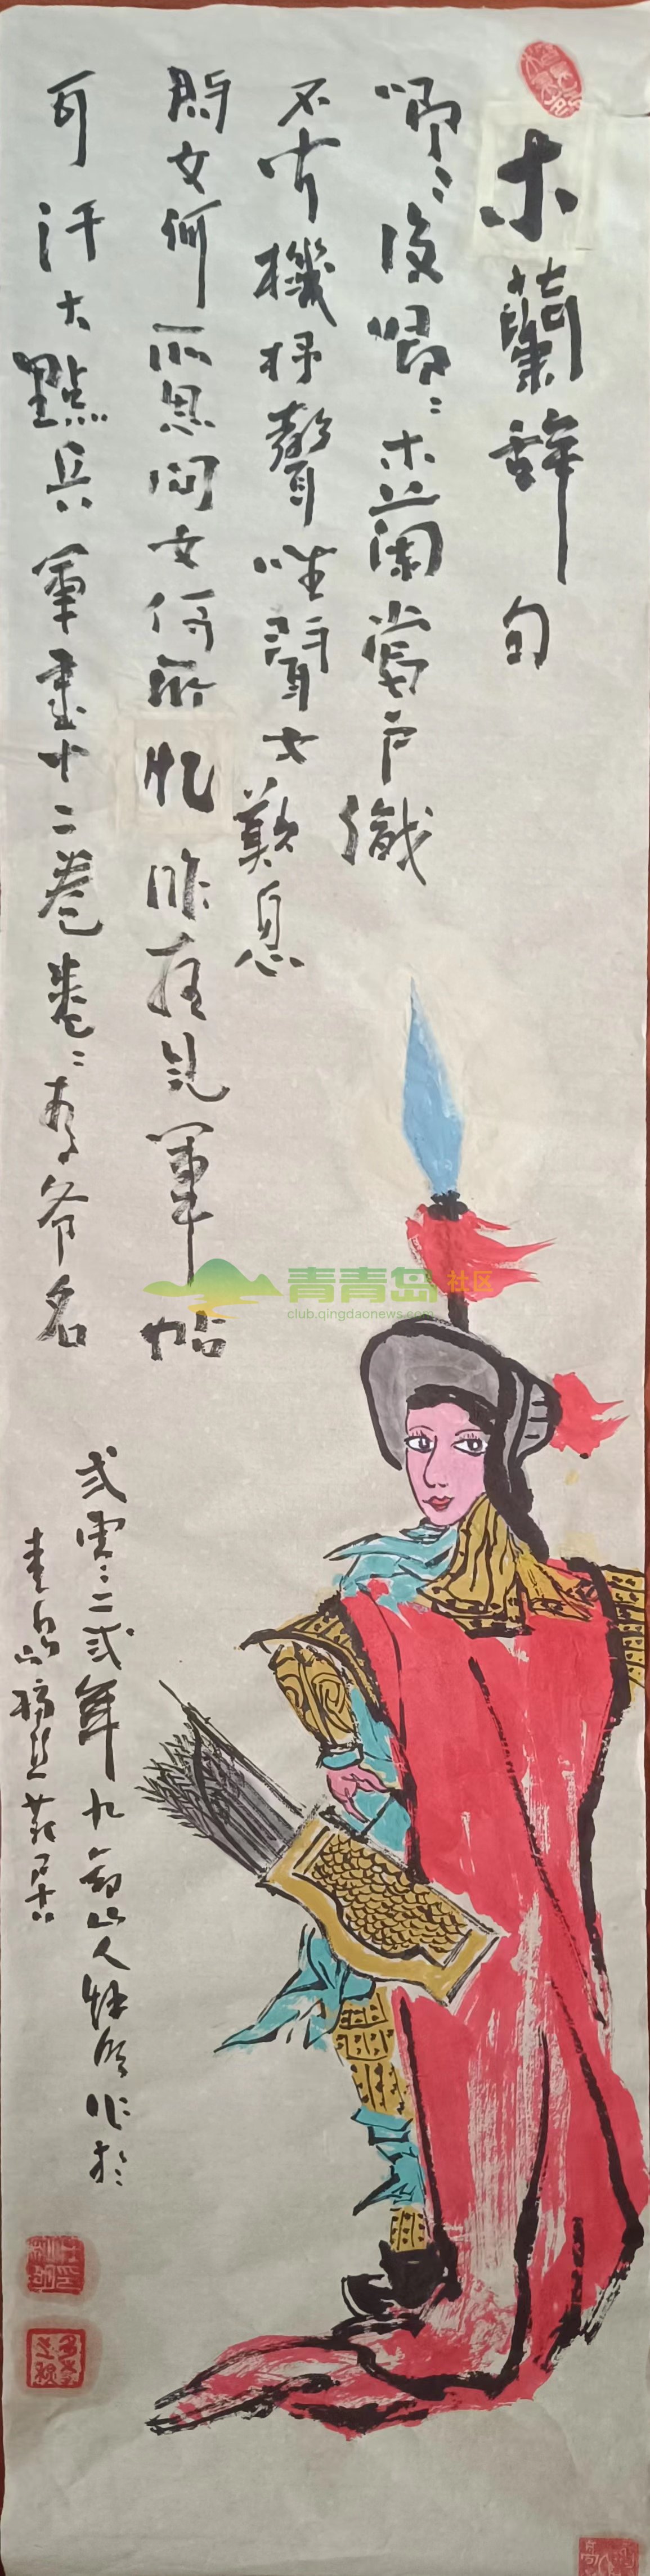 木蘭辞句
唧〻復唧〻木蘭當户織
不聞機杼聲唯聞女歎息
問女何所思問女何所憶昨夜見軍帖
可汗大點兵軍書十二卷卷〻有爷名
弍零二弍年九山人作於
青島
青青岛社区
club.qingdaonews.com